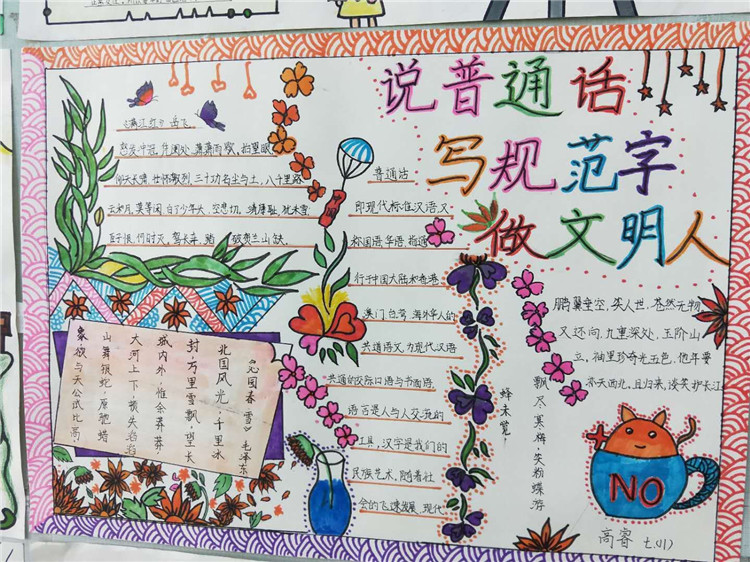 说普通话
写规范字
做文明人
《满江红》岳飞
怒发冲冠,凭阑处,潇潇雨歇,抬望眼
仰天长啸,壮怀激烈,三十功名尘与土,八千里路
云和月,莫等闲,白了少年头,空悲切,靖康耻,犹未雪,
臣子恨,何时灭,驾长车,踏破贺兰山缺.
《沁园春 雪》毛泽东
北国风光,千里冰
封,万里雪飘,望长
城内外,惟余莽莽
大河上下,顿失滔滔
山舞银蛇,原驰蜡
象,欲与天公试比高
普通话
即现代标准汉语又
称国语,华语,指通
行于中国大陆和香港
澳门,台湾,海外华人的
共通语文,为现代汉语
共通的交际口语与书面语
语言是人与人交流的
工具,汉字是我们的
民族艺术,随着社
会的飞速发展,现代
鹏翼垂空,笑人世,苍然无物
又还向,九重深处,玉阶山
立,袖里珍奇光五色,他年要
补天西北,且归来,谈笑护长江
飘尽寒梅,笑粉蝶游
蜂未觉,
NO
高睿 七.(1)